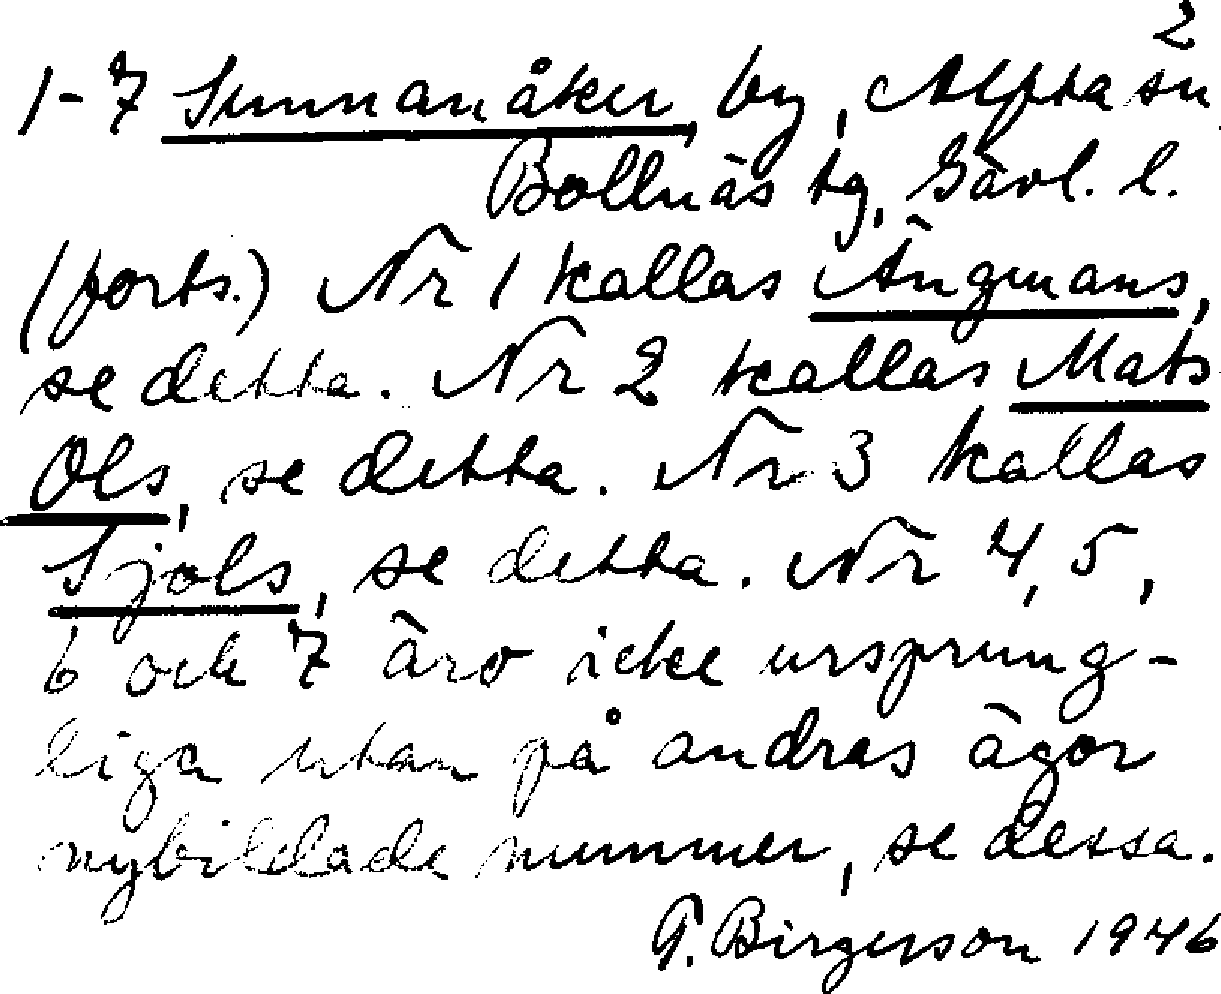 2
1-7 Sunnanåker, by, Alfta sn
Bollnäs tg, Gävl. l.
(forts.) Nr 1 kallas Ängmans,
se detta. Nr 2 kallas Mats
Ols, se detta. Nr 3 kallas
Sjols, se detta. Nr 4, 5,
6 och 7 äro icke ursprung-
liga utan på andras ägor
nybildade nummer, se dessa.
T. Birgerson 1946